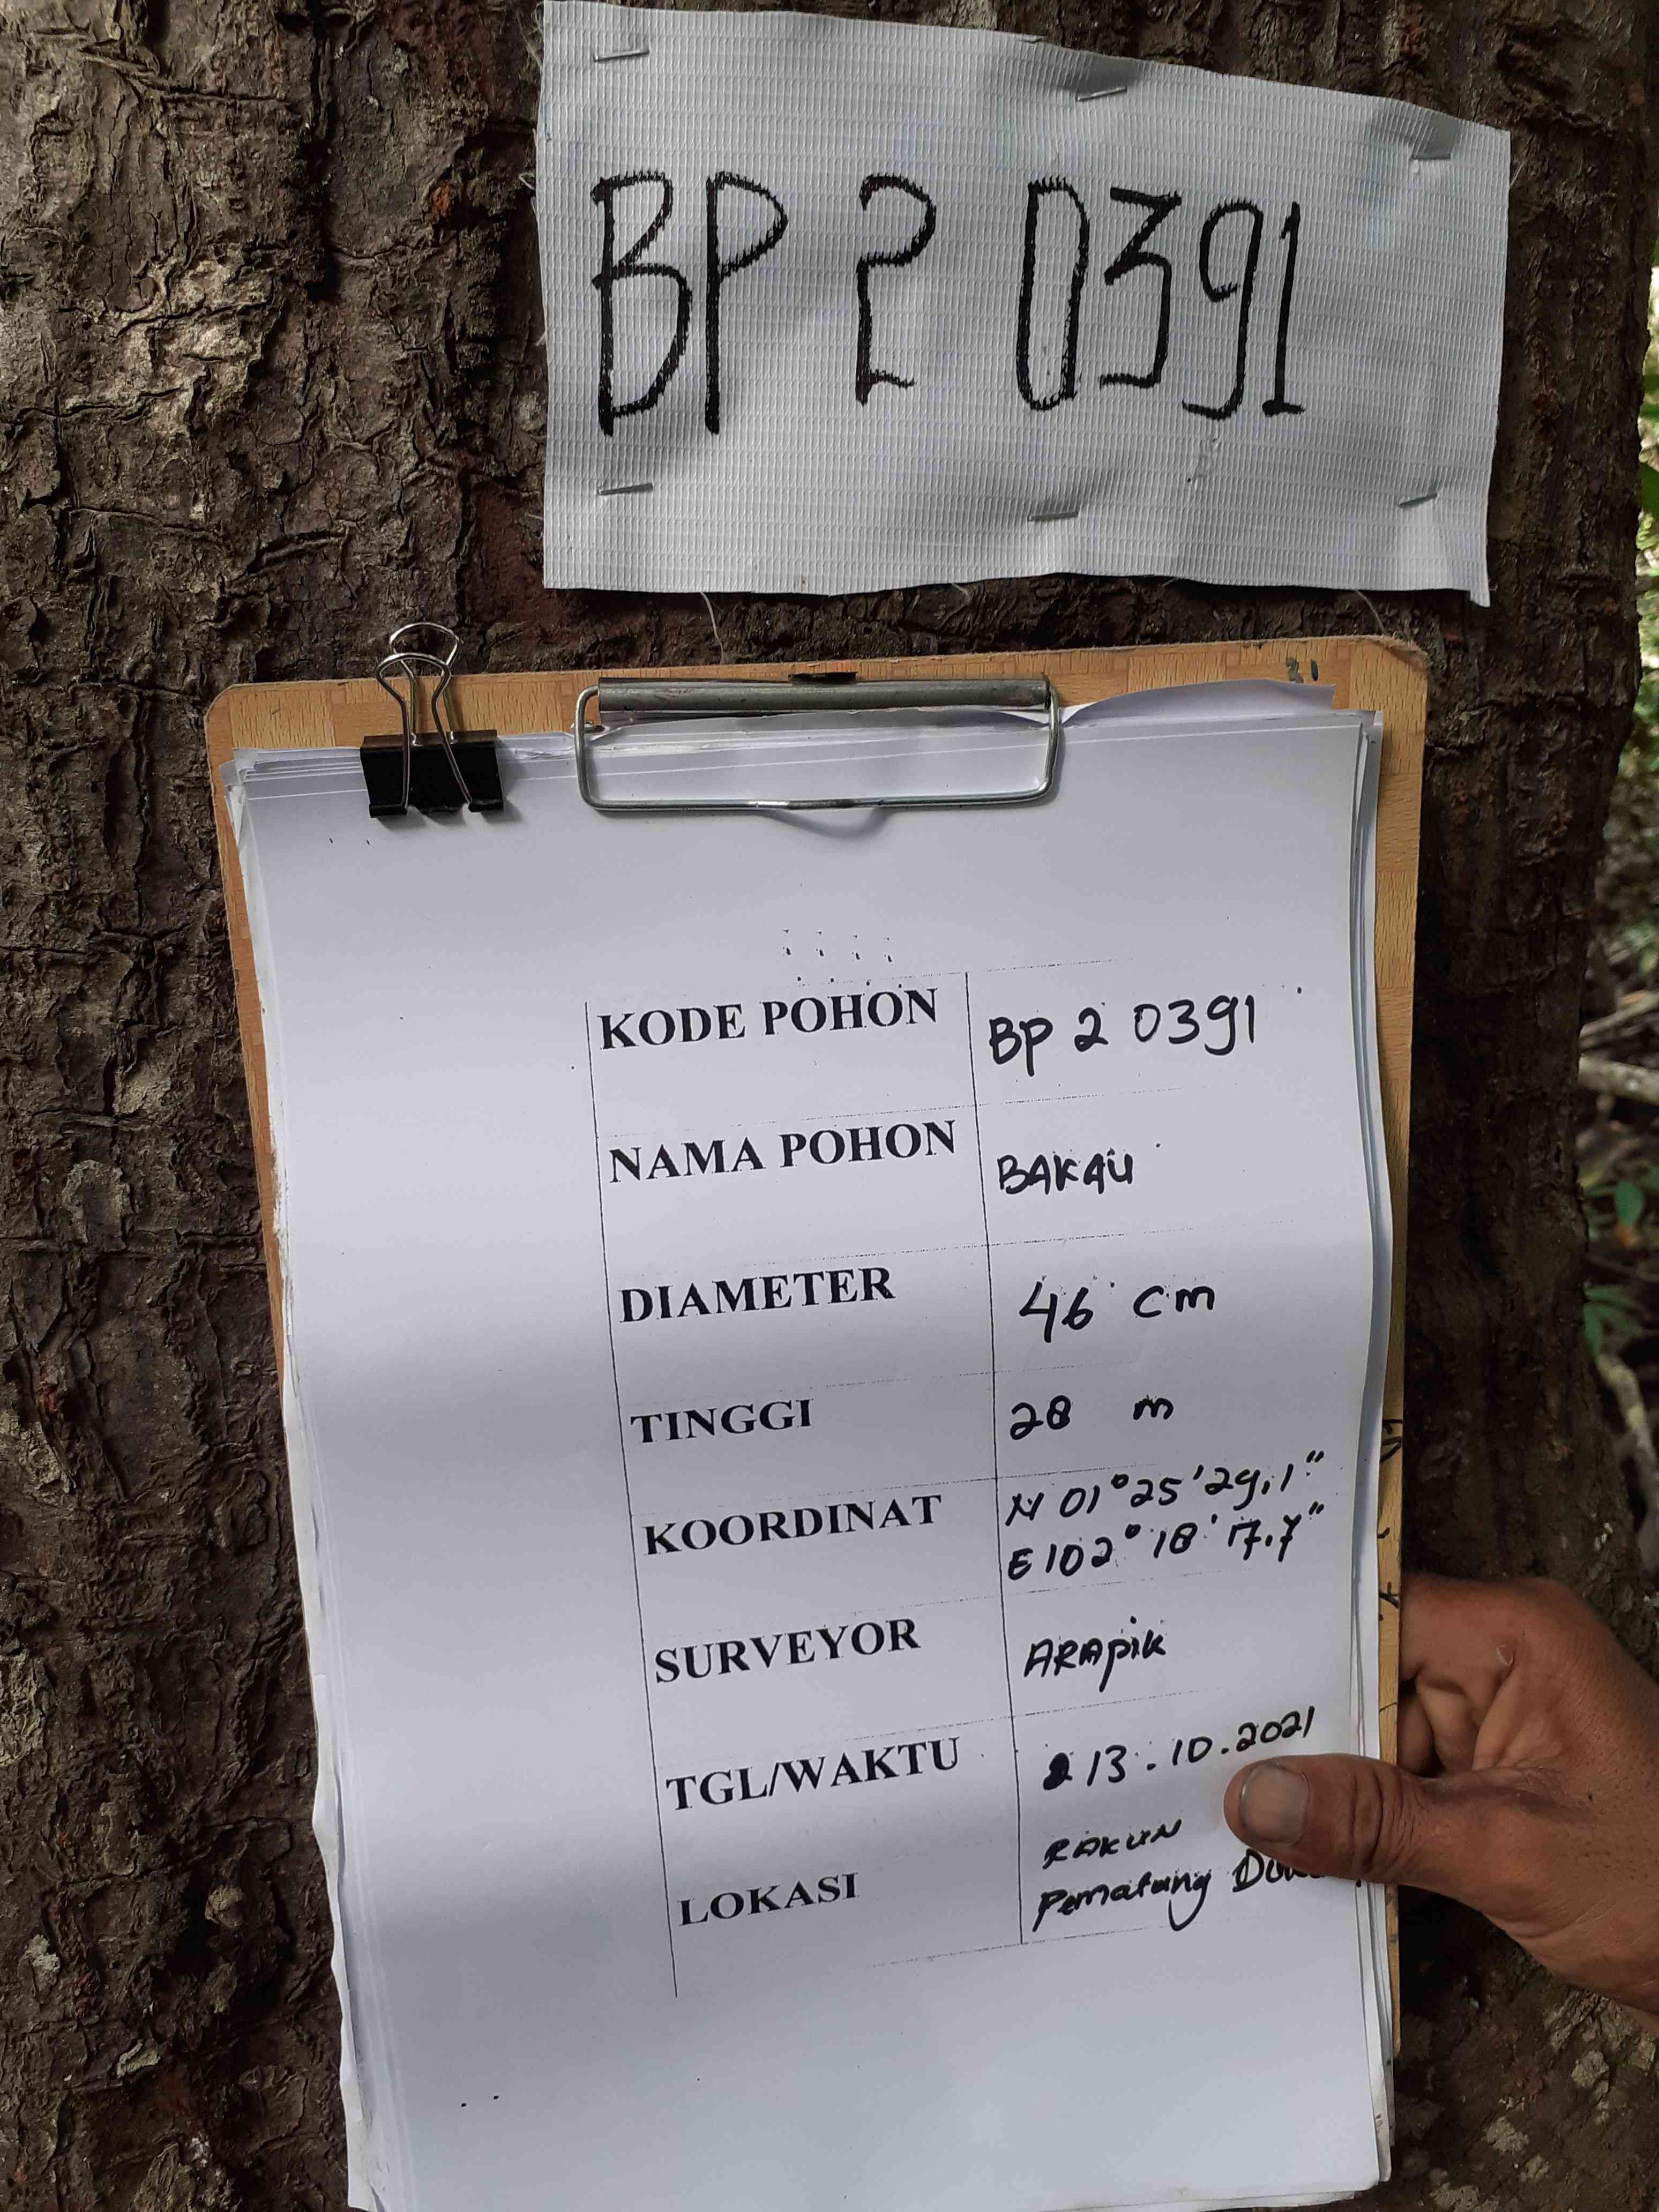 BP 2 0391
KODE POHON BP 2 0391
NAMA POHON BAKAU
DIAMETER 46 cm
TINGGI 28 m
KOORDINAT N 01° 25' 29,1"
E 102° 18' 17.7"
SURVEYOR ARApik
TGL/WAKTU 13.10.2021
LOKASI RAKUN
Pematang